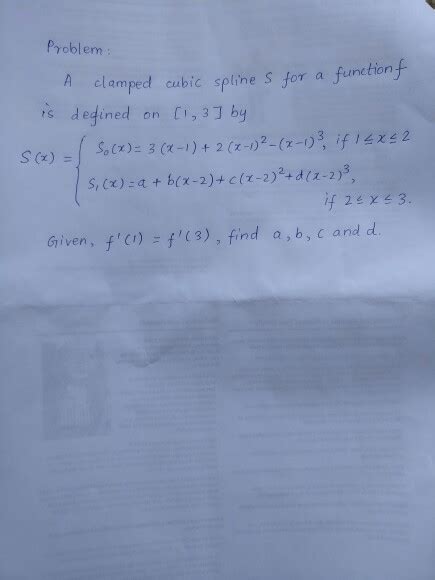 Problem:
A clamped cubic spline S for a function f
is defined on [1,3] by
S(x) = { S₀(x) = 3(x-1) + 2(x-1)² - (x-1)³, if 1≤x≤2
S₁(x) = a + b(x-2) + c(x-2)² + d(x-2)³,
if 2≤x≤3.
Given, f'(1) = f'(3), find a, b, c and d.